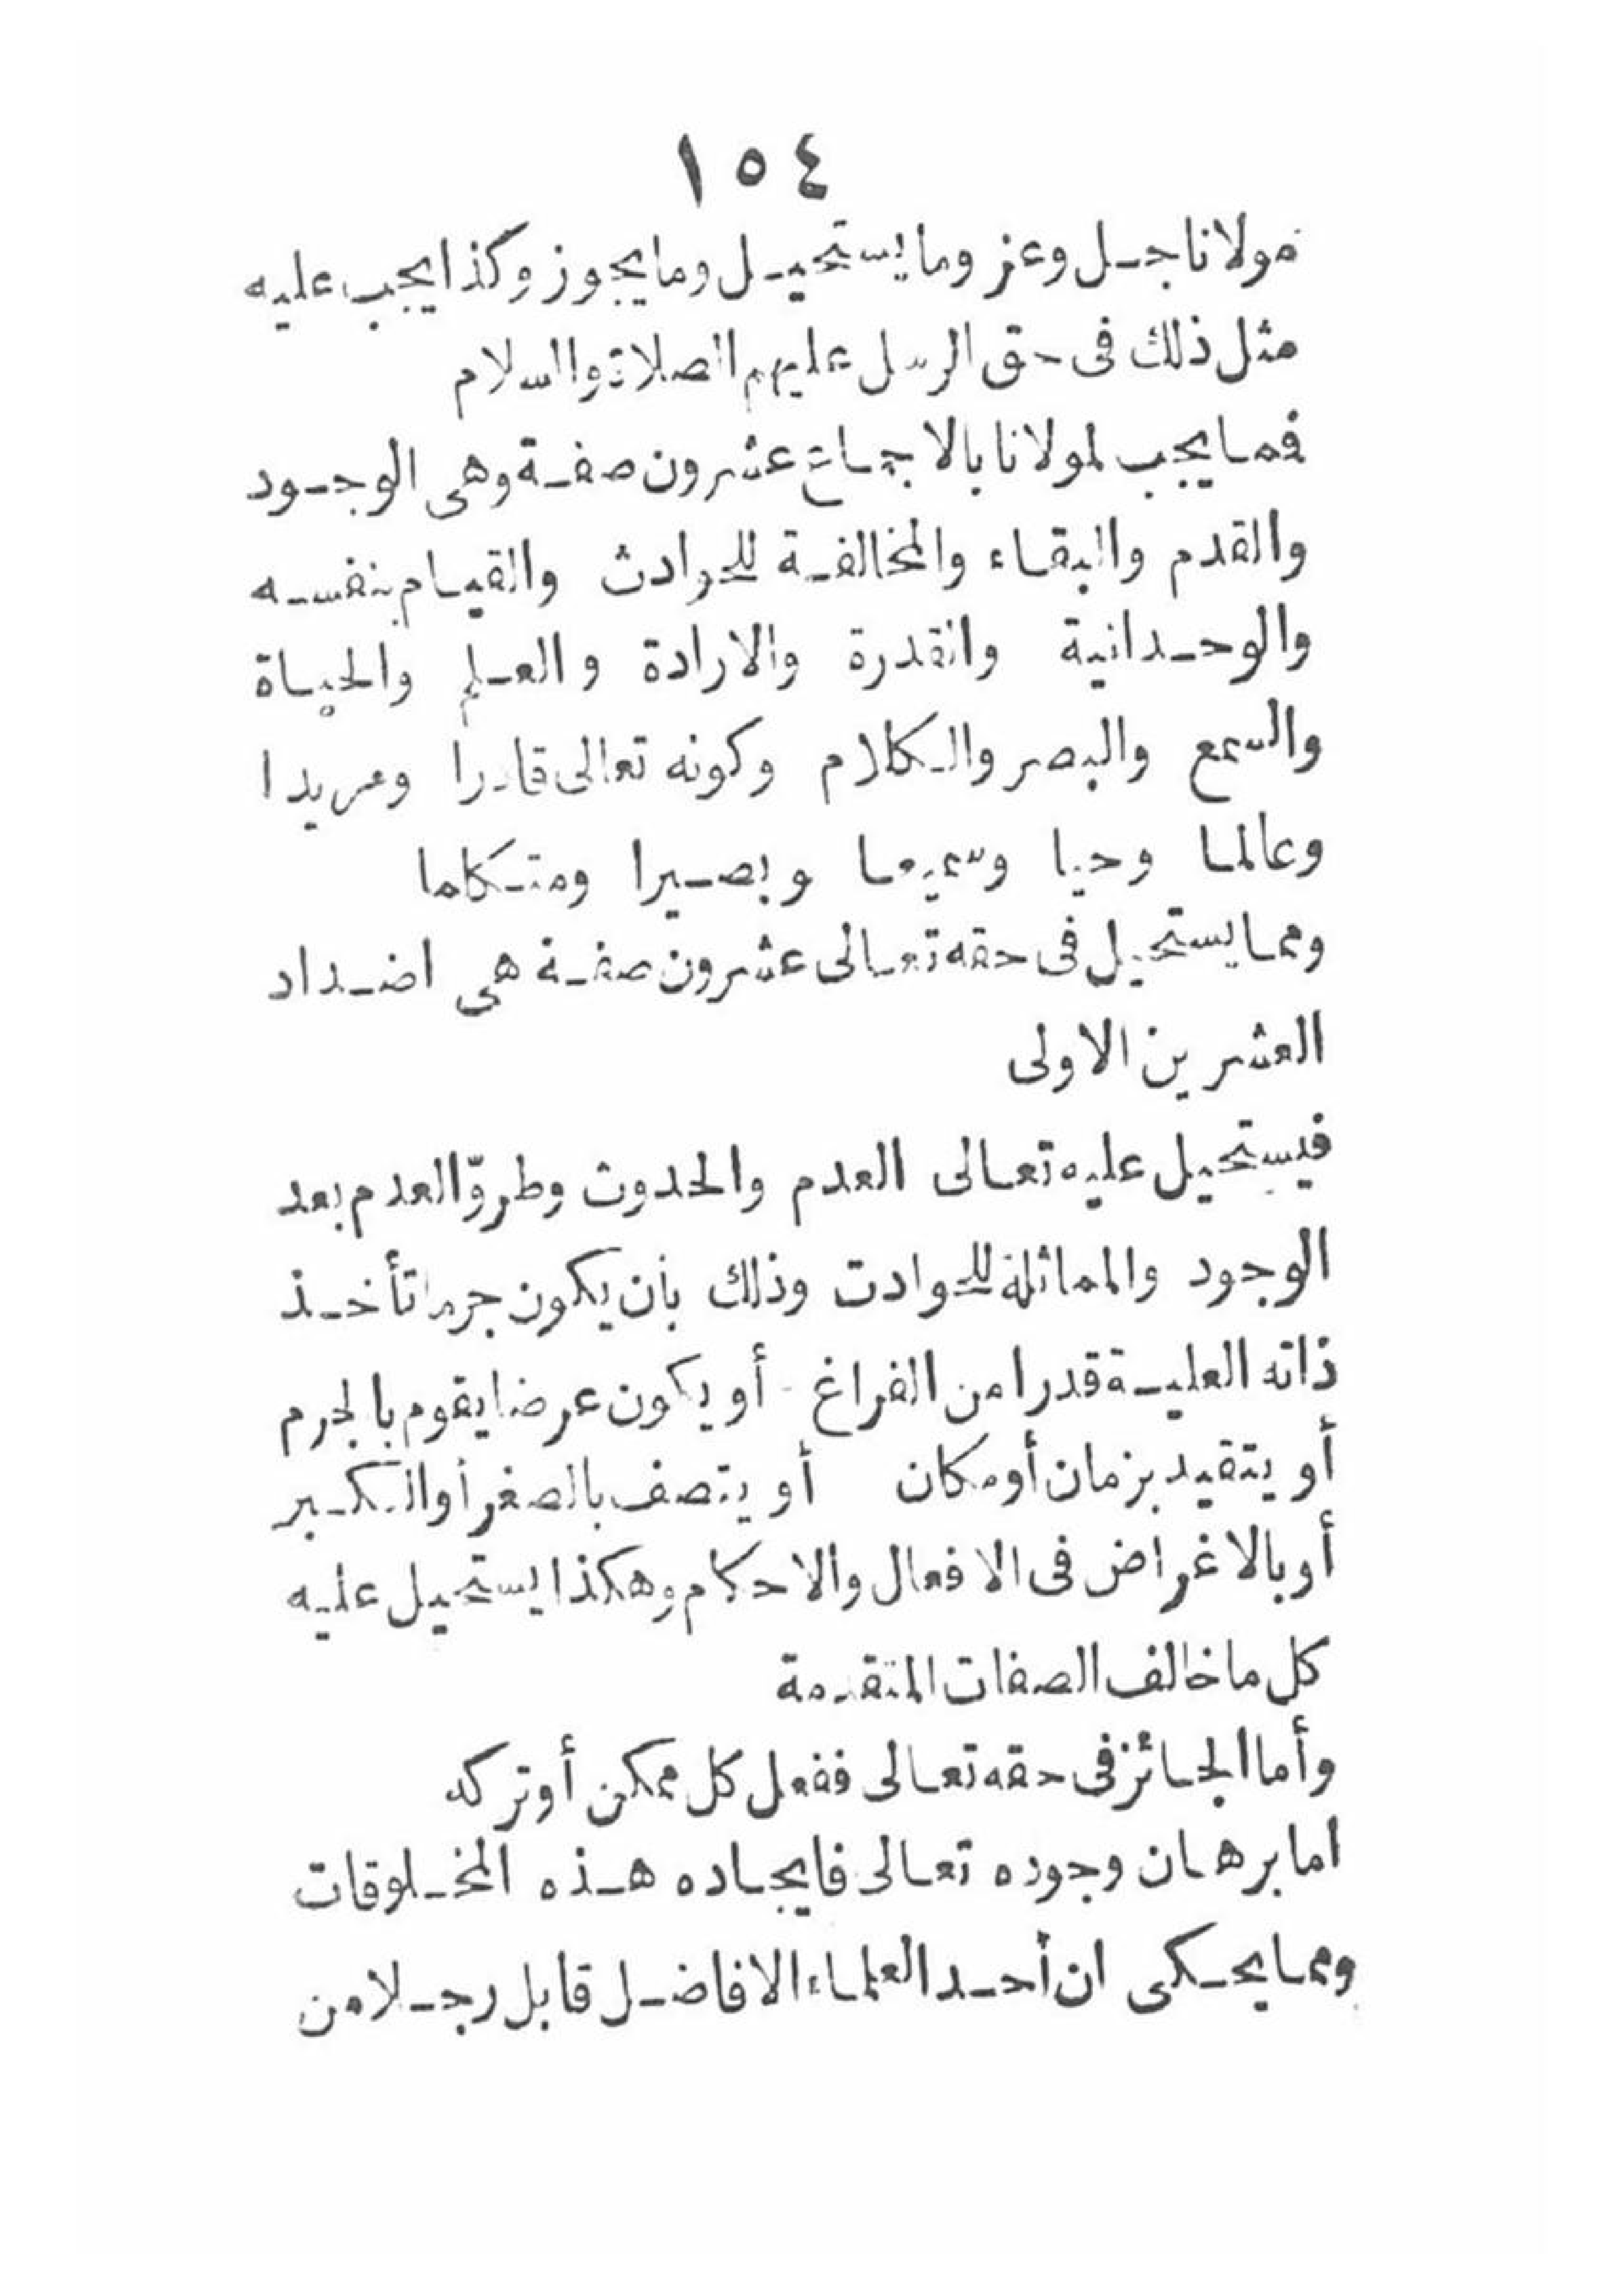 ١٥٤
مولانا جل وعز وما يستحيل وما يجوز وكذا يجب عليه
مثل ذلك فى حق الرسل عليهم الصلاة والسلام
فما يجب لمولانا بالاجماع عشرون صفة وهى الوجود
والقدم والبقاء والمخالفة للحوادث والقيام بنفسه
والوحدانية والقدرة والارادة والعلم والحياة
والسمع والبصر والكلام وكونه تعالى قادرا ومريدا
وعالما وحيا وسميعا وبصيرا ومتكلما
ومما يستحيل فى حقه تعالى عشرون صفة هى اضداد
العشرين الاولى
فيستحيل عليه تعالى العدم والحدوث وطروّ العدم بعد
الوجود والمماثلة للحوادث وذلك بأن يكون جرما تأخذ
ذاته العلية قدرا من الفراغ - أو يكون عرضا يقوم بالجرم
أو يتقيد بزمان أو مكان أو يتصف بالصغر أو الكبر
أو بالاغراض فى الافعال والاحكام وهكذا يستحيل عليه
كل ما خالف الصفات المتقدمة
وأما الجائز فى حقه تعالى ففعل كل ممكن أو تركه
اما برهان وجوده تعالى فايجاده هذه المخلوقات
ومما يحكى ان أحد العلماء الافاضل قابل رجلا من